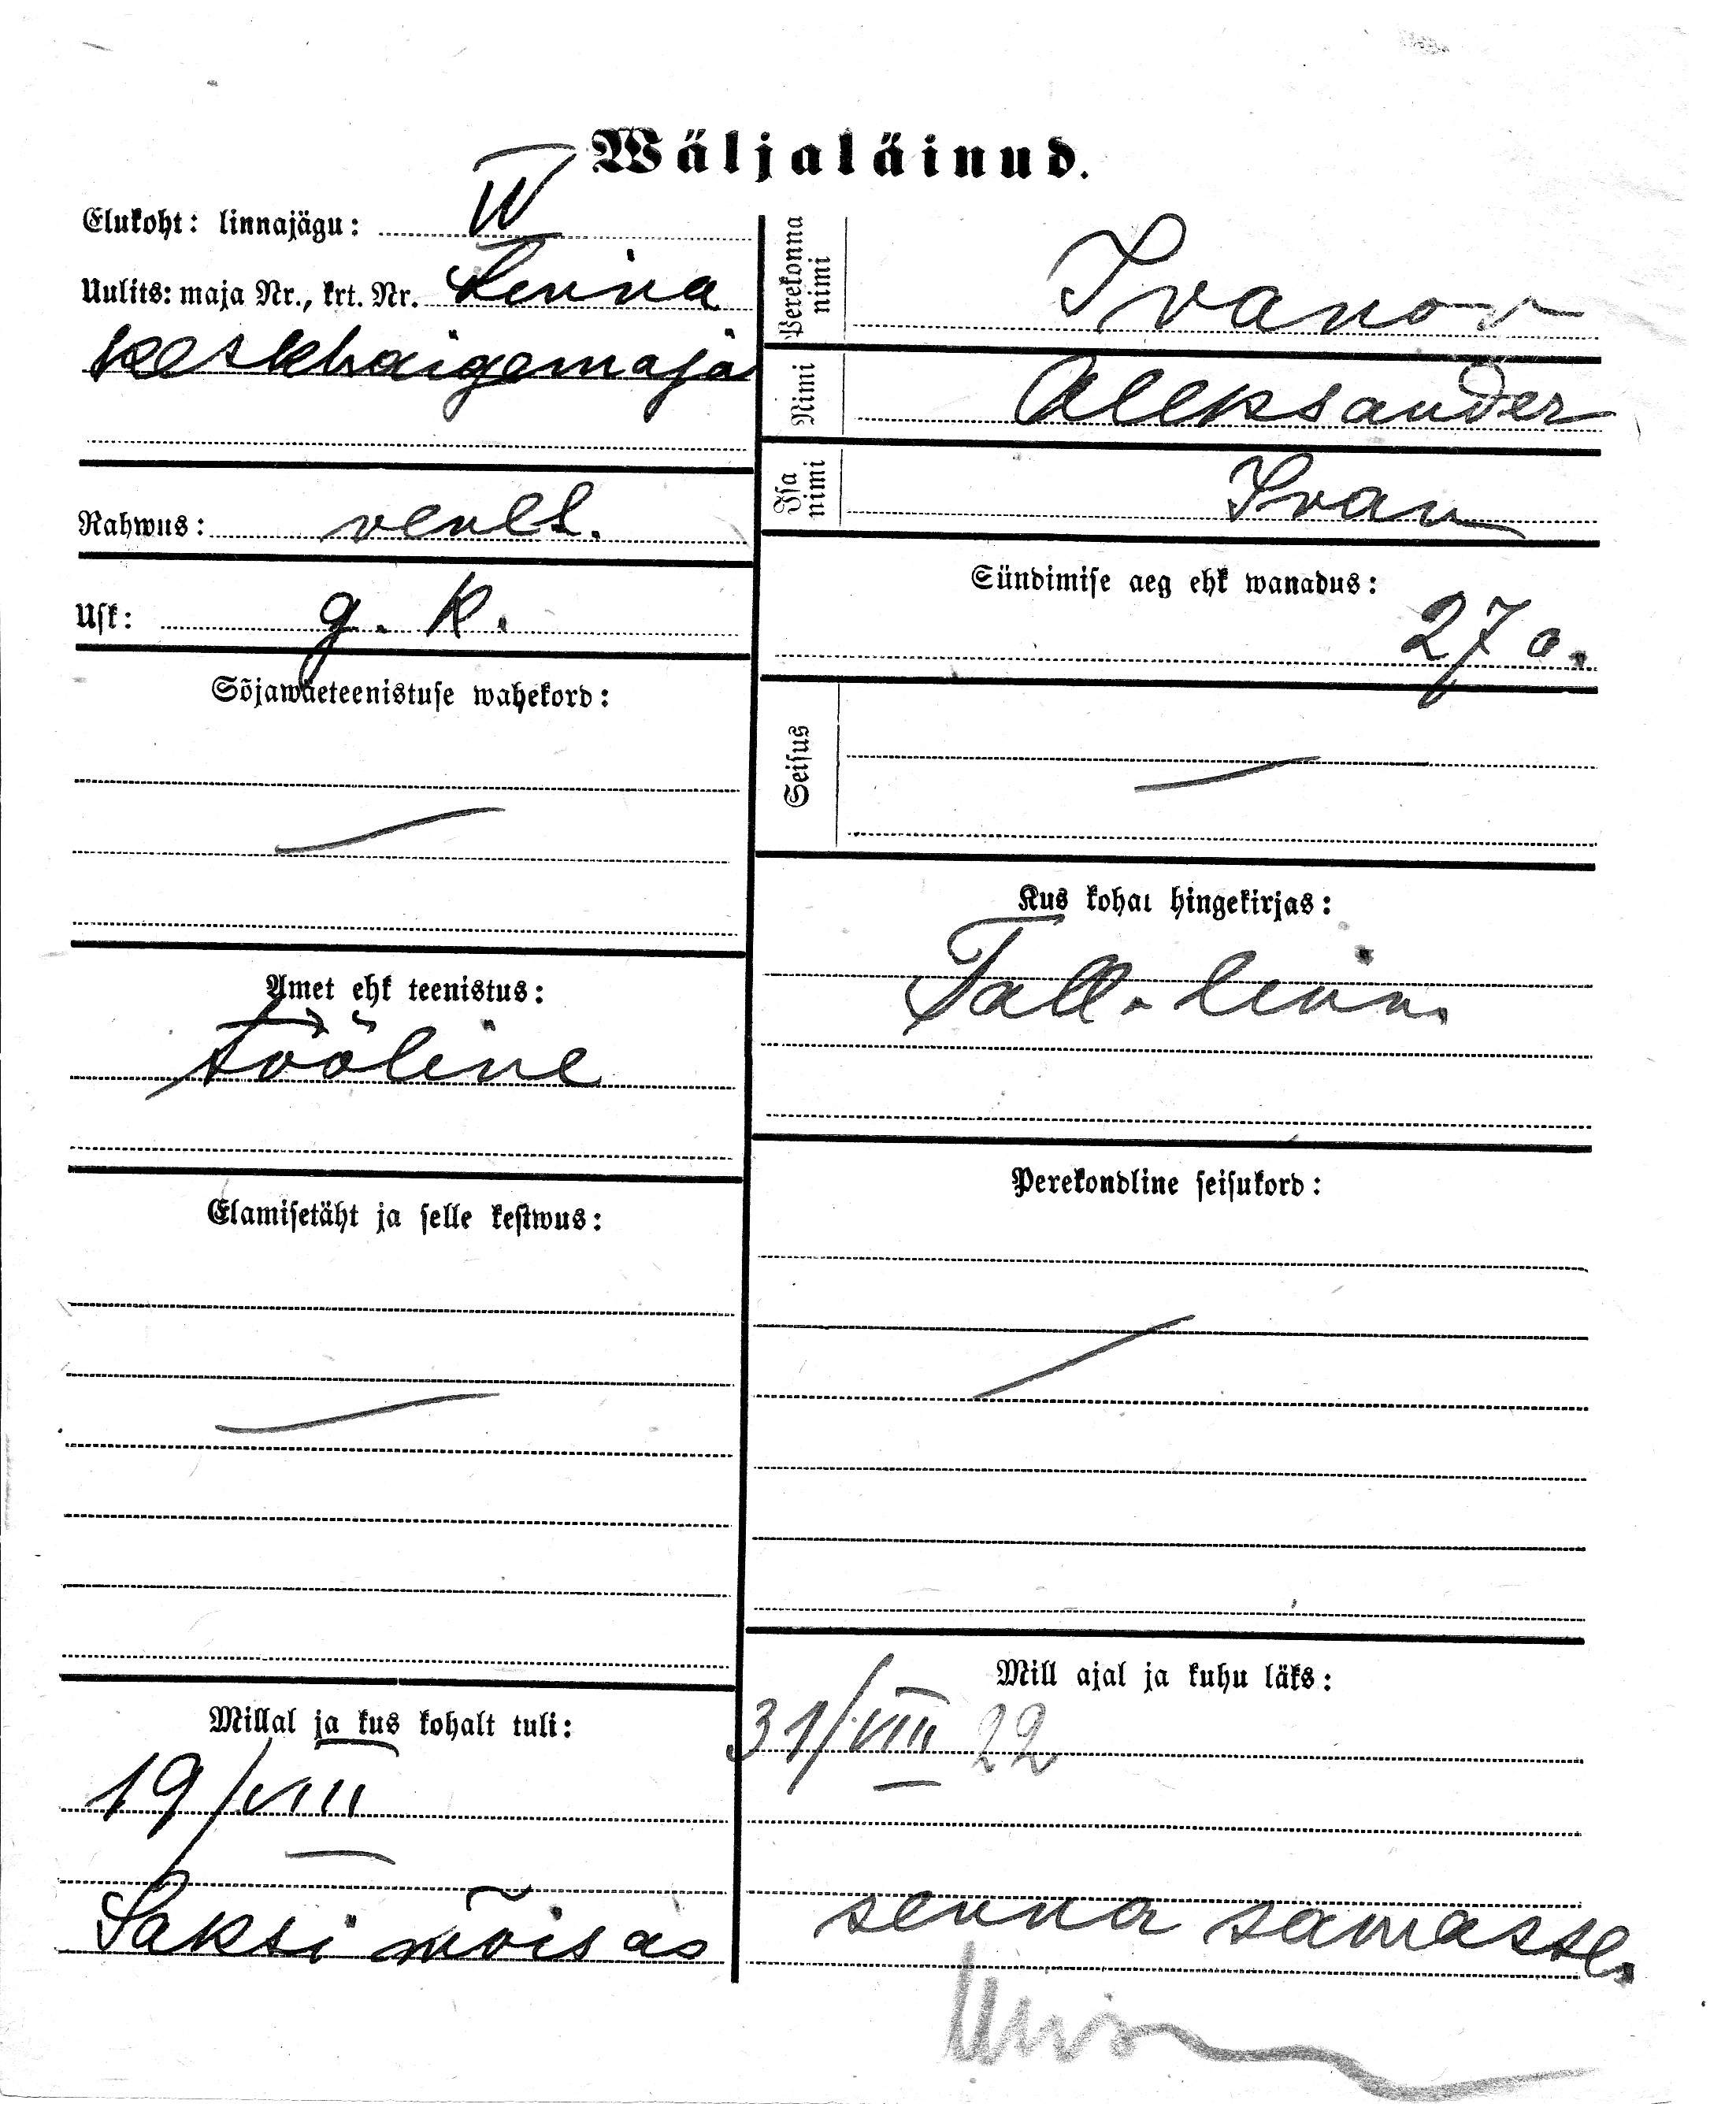 Wäljaläinud.
Elukoht: linnajägu: IV
Uulits: maja Nr., krt. Nr. Linna
keskhaigemaja
Rahwus: venel.
Usk: g. k.
Sõjawäeteenistuse wahekord: —
Amet ehk teenistus:
tööline
Elamisetäht ja selle kestwus: —
Millal ja kus kohalt tuli:
19/VIII
Saksi mõisas
Perekonna nimi Ivanov
Nimi Aleksander
Isa nimi Ivan
Sündimise aeg ehk wanadus:
27 a.
Seisus —
Kus kohal hingekirjas:
Tall. linn.
Perekondline seisukord: —
Mill ajal ja kuhu läks:
31/VIII 22
senna samasse.